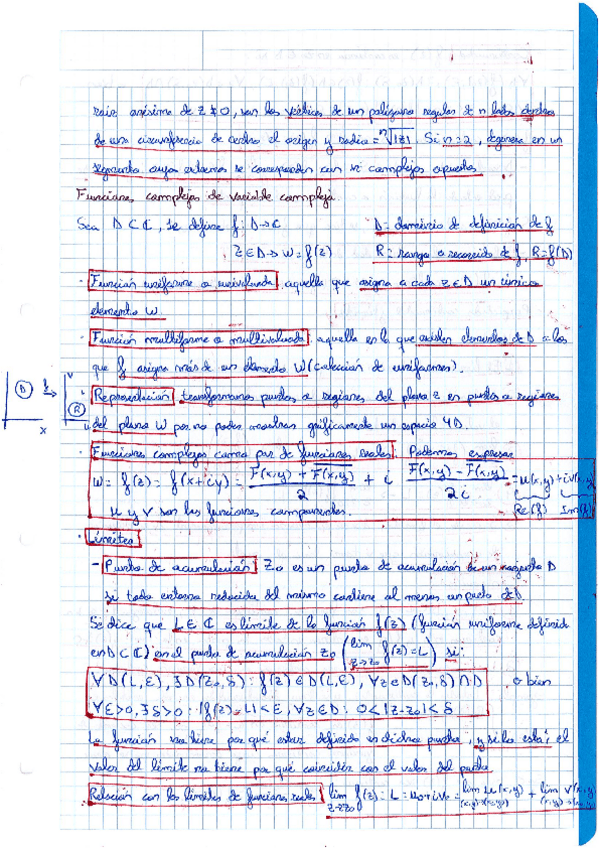 raíz enésima de z≠0, son los vértices de un polígono regular de n lados dentro
de una circunferencia de centro el origen y radio = ⁿ√|z|. Si n=2, degenera en un
segmento cuyos extremos se corresponden con complejos opuestos
Funciones complejas de variable compleja
Sea D⊂ℂ, se define f: D→ℂ D = dominio de definición de f
z∈D → w = f(z) R = rango o recorrido de f, R = f(D)
· Función uniforme o univaluada, aquella que asigna a cada z∈D un único
elemento w
· Función multiforme o multivaluada, aquella en la que existen elementos de D a los
que f asigna más de un elemento w (colección de uniformes).
D f R x v
· Representación, transformamos puntos o regiones del plano z en puntos o regiones
del plano w por no poder mostrar gráficamente un espacio 4D.
· Funciones complejas como par de funciones reales. Podemos expresar
w = f(z) = f(x+iy) = (F(x,y) + F̅(̅x̅,̅y̅)̅)/2 + i (F(x,y) - F̅(̅x̅,̅y̅)̅)/2i = u(x,y) + iv(x,y)
u y v son las funciones componentes. Re(f) Im(f)
· Límites
- Punto de acumulación: z₀ es un punto de acumulación de un conjunto D
si todo entorno reducido del mismo contiene al menos un punto de D.
Se dice que L∈ℂ es límite de la función f(z) (función uniforme definida
en D⊂ℂ) en el punto de acumulación z₀ (lim z→z₀ f(z)=L) si:
∀D(L,ε), ∃D(z₀,δ) : f(z)∈D(L,ε), ∀z∈D(z₀,δ)∩D o bien
∀ε>0, ∃δ>0 : |f(z)-L|<ε, ∀z∈D : 0<|z-z₀|<δ
La función no tiene por qué estar definida en dicho punto, y si lo está, el
valor del límite no tiene por qué coincidir con el valor del punto
Relación con los límites de funciones reales lim z→z₀ f(z) = L = u₀+iv₀ = lim u(x,y) + lim v(x,y)